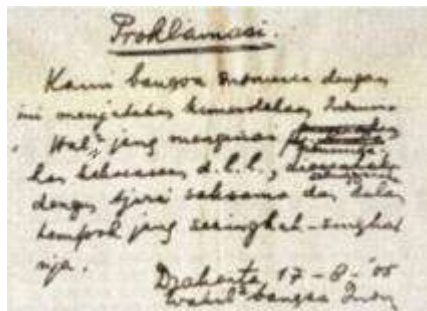 Proklamasi.
Kami bangsa Indonesia dengan
ini menjatakan kemerdekaan Indones
Hal² jang mengenai
kekoeasaan d.l.l.,
dengan tjara saksama dan dalam
tempoh jang sesingkat-singkat
nja.
Djakarta 17-8-'05
Wakil² bangsa Indon